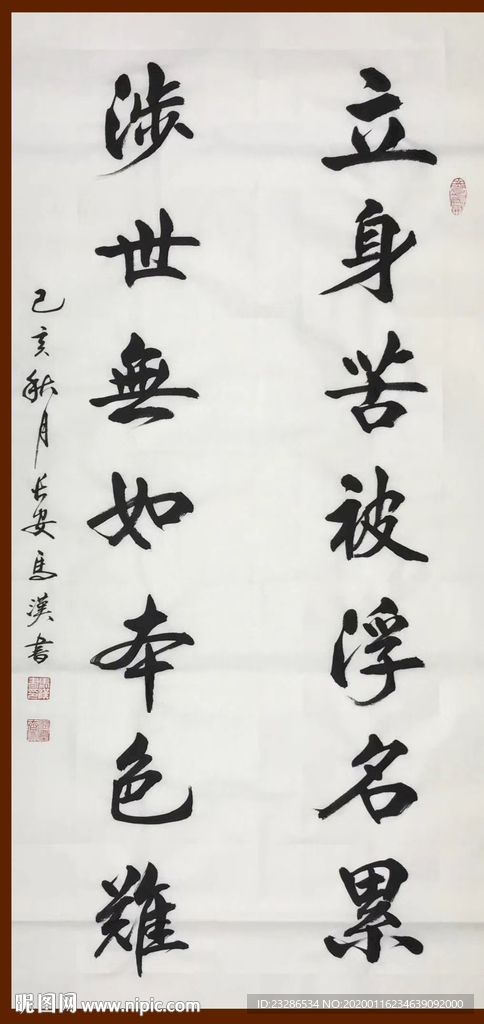 立身苦被浮名累
涉世無如本色難
己亥秋月长安馬漢書
昵图网 www.nipic.com
ID:23286534 NO:20200116234639092000